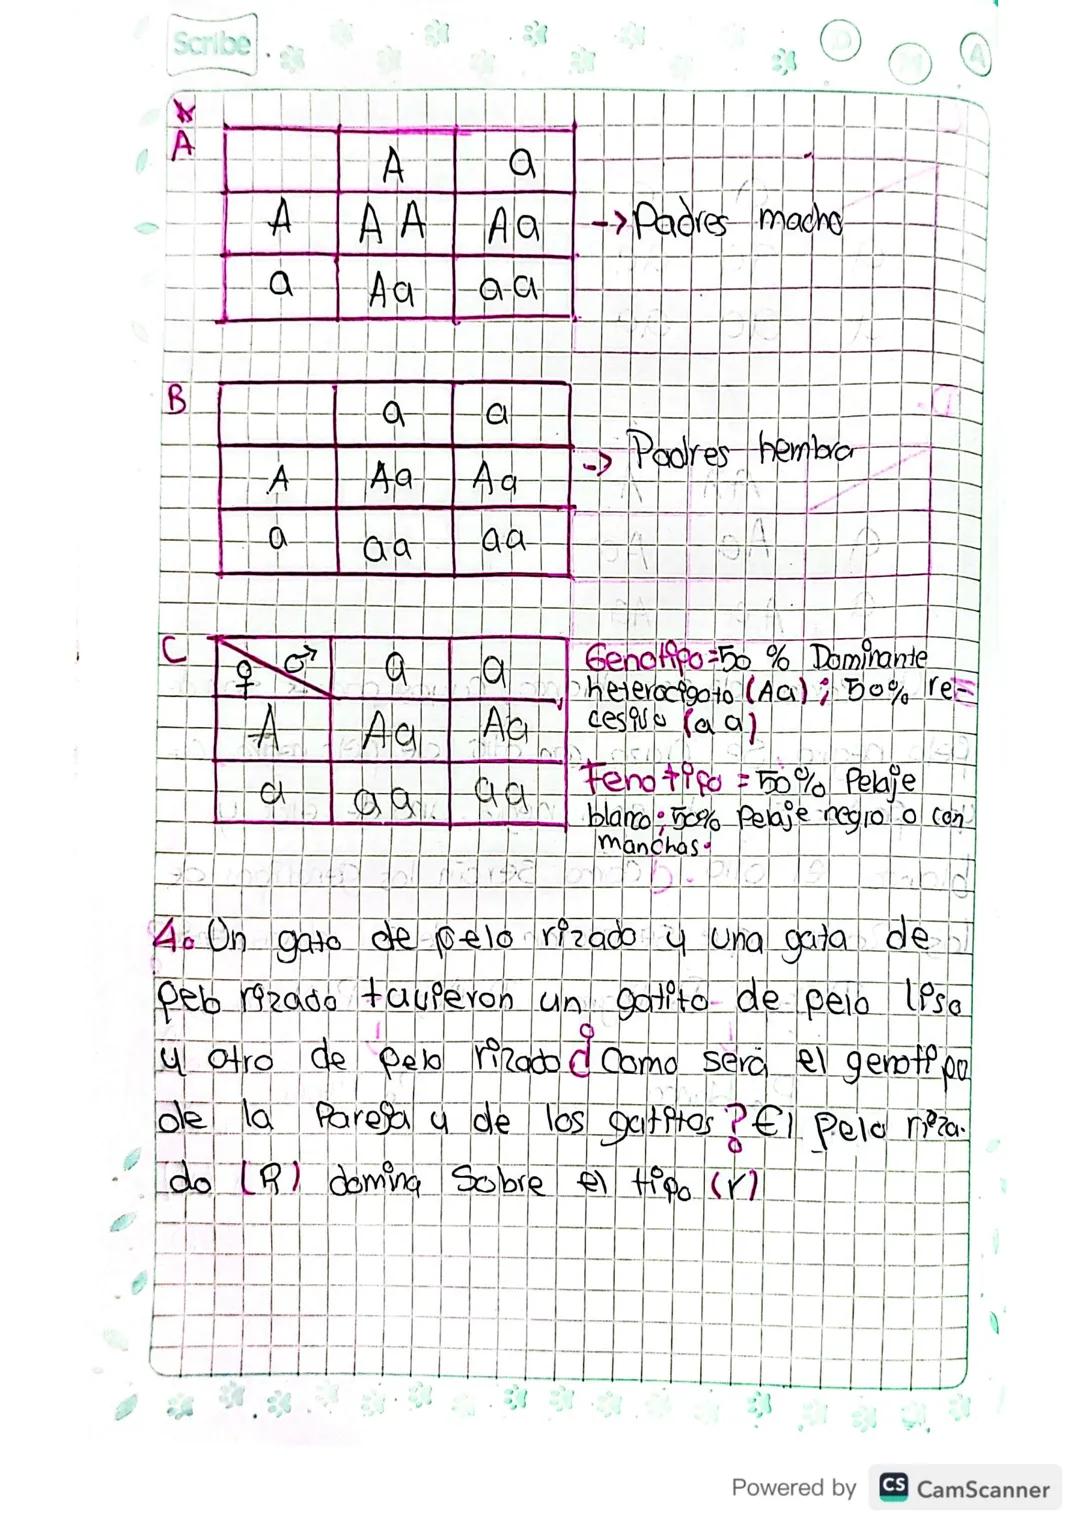 Scribe
D
M
A
A
A a
A AA Aa
a Aa aa
-> Padres macho
B
a a
A Aa Aa
a aa aa
-> Padres hembra
C
♀ ♂ a a
A Aa Aa
a aa aa
Genotipo=50 % Dominante
heterocigoto (Aa); 50% re-
cesivo (aa)
Fenotipo = 50% Pelaje
blanco; 50% Pelaje negro o con
manchas.
4. Un gato de pelo rizado y una gata de
pelo rizado tuvieron un gatito de pelo liso
y otro de pelo rizado ¿Como será el genotipo
de la Pareja y de los gatitos? El pelo riza-
do (R) domina sobre el tipo (r)
Powered by CS CamScanner